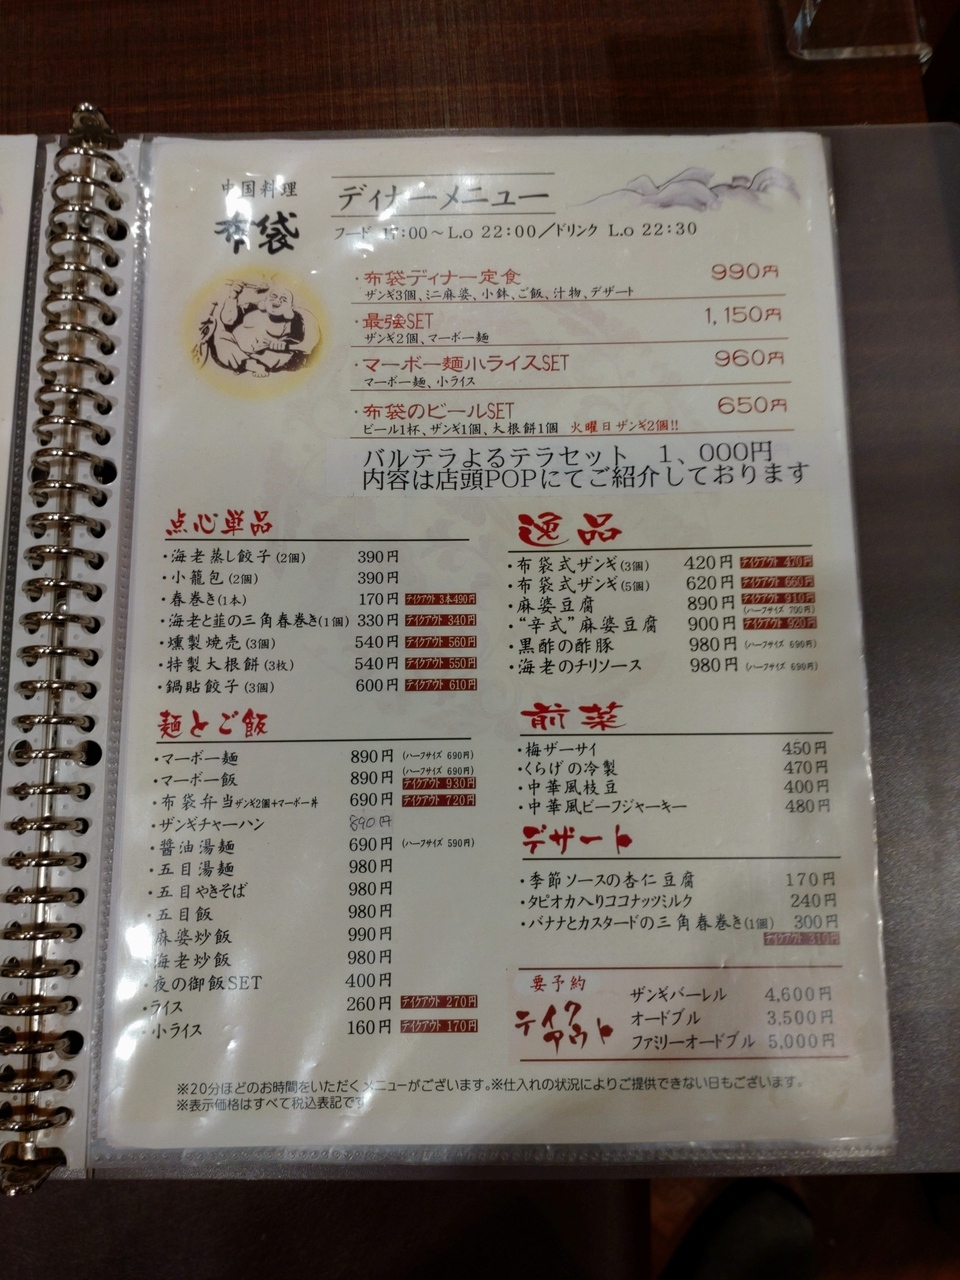 中国料理
布袋
ディナーメニュー
フード 17:00～L.o 22:00／ドリンク L.o 22:30
・布袋ディナー定食 990円
ザンギ3個、ミニ麻婆、小鉢、ご飯、汁物、デザート
・最強SET 1,150円
ザンギ2個、マーボー麺
・マーボー麺小ライスSET 960円
マーボー麺、小ライス
・布袋のビールSET 650円
ビール1杯、ザンギ1個、大根餅1個 火曜日ザンギ2個!!
バルテラよるテラセット 1、000円
内容は店頭POPにてご紹介しております
点心単品
・海老蒸し餃子(2個) 390円
・小籠包(2個) 390円
・春巻き(1本) 170円 テイクアウト 3本490円
・海老と韮の三角春巻き(1個) 330円 テイクアウト 340円
・燻製焼売(3個) 540円 テイクアウト 560円
・特製大根餅(3枚) 540円 テイクアウト 550円
・鍋貼餃子(3個) 600円 テイクアウト 610円
麺とご飯
・マーボー麺 890円 (ハーフサイズ 690円)
・マーボー飯 890円 (ハーフサイズ 690円) テイクアウト 930円
・布袋弁当ザンギ2個+マーボー丼 690円 テイクアウト 720円
・ザンギチャーハン 890円
・醤油湯麺 690円 (ハーフサイズ 590円)
・五目湯麺 980円
・五目やきそば 980円
・五目飯 980円
麻婆炒飯 990円
海老炒飯 980円
・夜の御飯SET 400円
・ライス 260円 テイクアウト 270円
・小ライス 160円 テイクアウト 170円
逸品
・布袋式ザンギ(3個) 420円 テイクアウト 470円
・布袋式ザンギ(5個) 620円 テイクアウト 660円
・麻婆豆腐 890円 テイクアウト 910円 (ハーフサイズ 700円)
・“辛式”麻婆豆腐 900円 テイクアウト 920円
・黒酢の酢豚 980円 (ハーフサイズ 690円)
・海老のチリソース 980円 (ハーフサイズ 690円)
前菜
・梅ザーサイ 450円
・くらげの冷製 470円
・中華風枝豆 400円
・中華風ビーフジャーキー 480円
デザート
・季節ソースの杏仁豆腐 170円
・タピオカ入りココナッツミルク 240円
・バナナとカスタードの三角春巻き(1個) 300円
テイクアウト 310円
要予約
テイクアウト
ザンギバーレル 4,600円
オードブル 3,500円
ファミリーオードブル 5,000円
※20分ほどのお時間をいただくメニューがございます。※仕入れの状況によりご提供できない日もございます。
※表示価格はすべて税込表記です